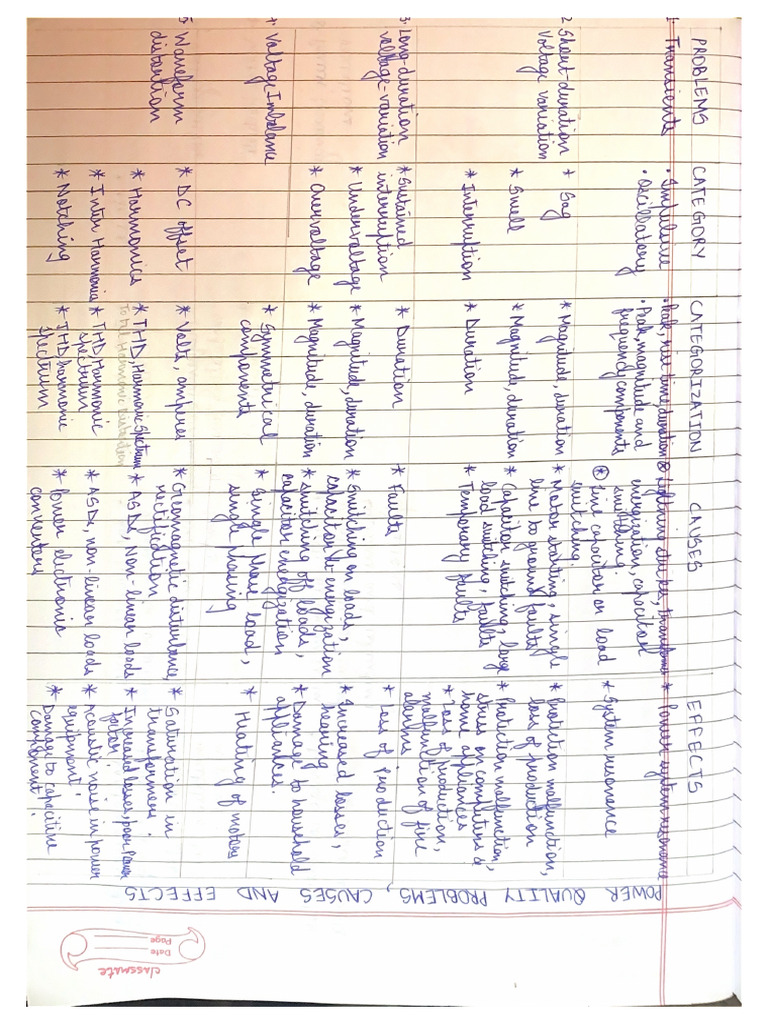 POWER QUALITY PROBLEMS, CAUSES AND EFFECTS
PROBLEMS CATEGORY CATEGORIZATION CAUSES EFFECTS
1. Transients • Impulsive • Peak, rise time, duration * Lightning strikes, transformer * Power system resonance
energization, capacitor
switching.
• Oscillatory • Peak, magnitude and * Line capacitor or load * System resonance
frequency components switching.
2. Short-duration * Sag * Magnitude, duration * Motor starting, single * Protection malfunction,
Voltage variation line to ground faults loss of production
* Swell * Magnitude, duration * Capacitor switching, large * Protection malfunction,
load switching, faults stress on computers &
home appliances
* Interruption * Duration * Temporary faults * Loss of production,
malfunction of fire
alarms
3. Long-duration * Sustained * Duration * Faults * Loss of Production
voltage-variation interruption
* Undervoltage * Magnitude, duration * Switching on loads, * Increased losses,
capacitor de-energization heating
* Overvoltage * Magnitude, duration * Switching off loads, * Damage to household
capacitor energization appliances.
4. Voltage Imbalance * Symmetrical * Single Phase load, * Heating of motors
components single phasing
5. Waveform * DC offset * Volts, amperes * Geomagnetic disturbance, * Saturation in
distortion rectification transformers.
* Harmonics * THD, Harmonic Spectrum * ASDs, Non-linear loads * Increased losses, poor Power
Total Harmonic Distortion factor
* Inter Harmonics * THD, Harmonic * ASDs, non-linear loads * Acoustic noise in power
spectrum equipment
* Notching * THD, harmonic * Power electronic * Damage to capacitive
Spectrum converters component.
classmate
Date
Page